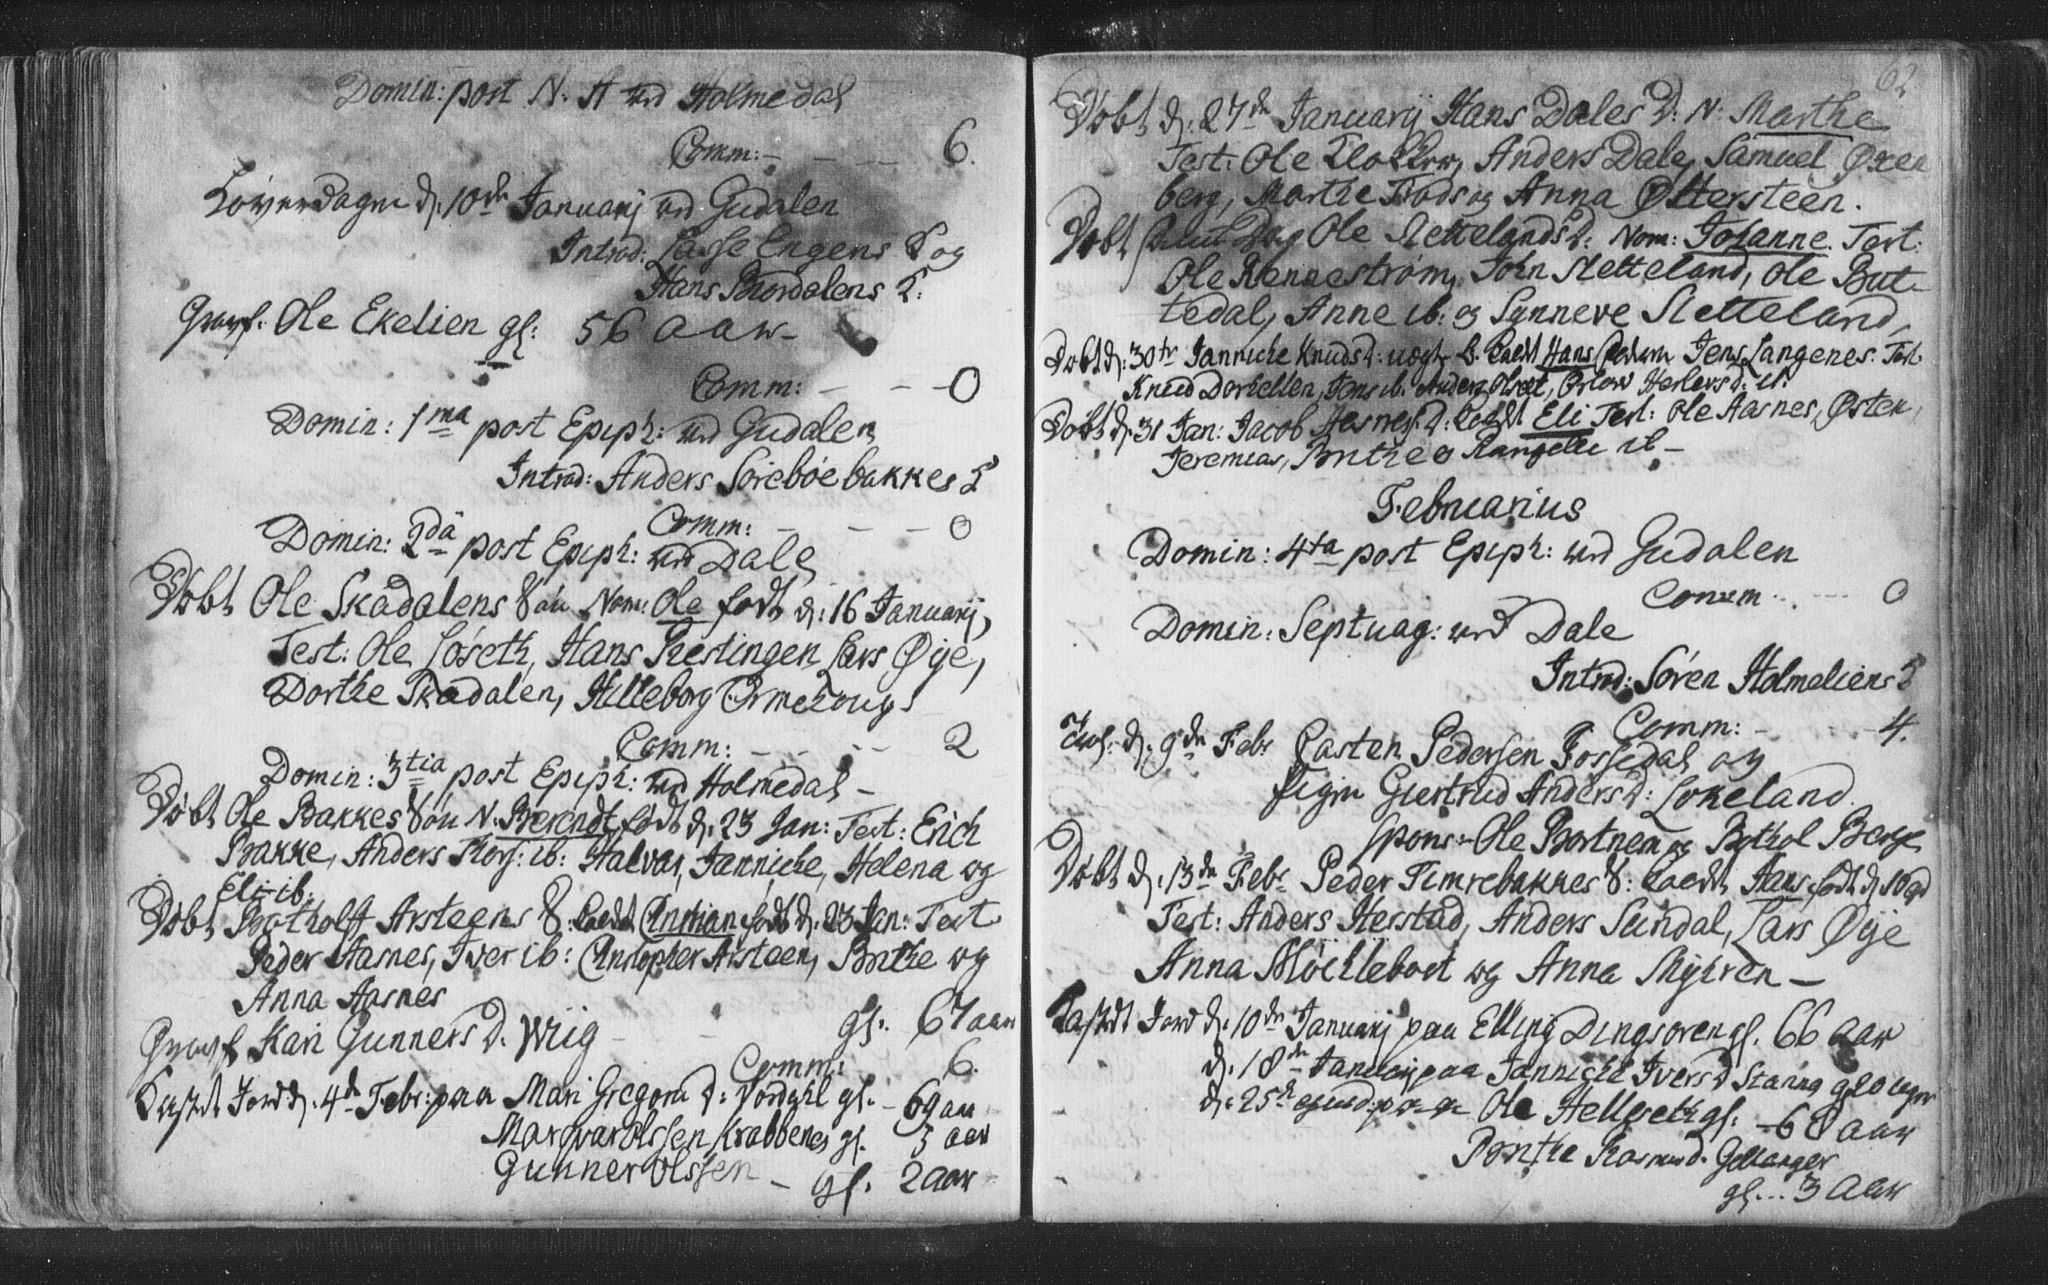 Domin: post N. A ved Holmedal
Comm: - - - 6.
Løverdagen d. 10de Januarij ved Gudalen
Introd: Lasse Engens K og
Hans Biordalens K:
Graf. Ole Ekelien gl: 56 aar -
Comm: - - - 0
Domin: 1ma post Epiph: ved Gudalen
Introd: Anders Sørebøe bakkes K
Comm: - - - 0
Domin: 2da post Epiph: ved Dale
Døbt Ole Skadalens Søn Nom: Ole født d: 16 Januarij,
Test: Ole Løseth, Hans Lars Øye,
Dorthe Skadalen, Hilleborg
Comm: - - - 2
Domin: 3tia post Epiph: ved Holmedal -
Døbt Ole Bakkes Søn N. Berendt, født d. 23 Jan: Test: Erich
Bakke, Anders ib: Halvar, Jannicke, Helena og
Eli ib.
Døbt Botholff Arsteens S: kaldt Christian født d. 23 Jan: Test
Peder Aasnes, Iver ib: Christopher Arsteen, Brithe og
Anna Aasnes
Graf Kari Gunners d. Wiig - - gl. 67 aar
Comm: 6.
Kastet Jord d. 4de Febr: paa Mari d: gl. - 69 aar
Olssen Krabbenes gl. 3 aar
Gunner Olssen - gl. 2 aar
62
Døbt d. 27de Januarij Hans Dales D: N: Marthe
Test: Ole Klokker, Anders Dale, Samuel Øxen
berg, Marthe og Anna Øttersteen.
Døbt Dag Ole Slettelands D: Nom: Johanne. Test:
Ole Rennestrøm, John Sletteland, Ole But-
tedal, Anne ib: og Synneve Sletteland,
Døbt d. 30te Jannicke Knuds D: kaldt Hans Jens Langenes. Test:
Knud Jens ib. Anders ib.
Døbt d. 31 Jan: Jacob Aasnes D: kaldt Eli Test: Ole Aasnes, Østen,
Jeremias, Brithe og ib -
Februarius
Domin: 4ta post Epiph: ved Gudalen
Comm - - - 0
Domin: Septuag: ved Dale
Introd: Søren Holmeliens K
Comm: - - - 4.
d. 9de Febr Casten Pedersen Fossedal og
Pigen Giertrud Anders D: Lokeland.
Spons: Ole Bortnen og Bothol Berge
Døbt d. 13de Febr Peder Timrebakkes S: kaldt Hans født d 10
Test: Anders Herstad, Anders Sundal, Lars Øye
Anna Møcklebost og Anna Myhren -
Kastet Jord d. 10de Januarij paa Elling Dingsøren gl. 66 aar
d. 18de Januarij paa Jannicke Ivers D Stanng
d. 25de paa Ole Hellseth gl. - 68 aar
Brithe Rasmus d. Gellanger
gl. .. 3 aar